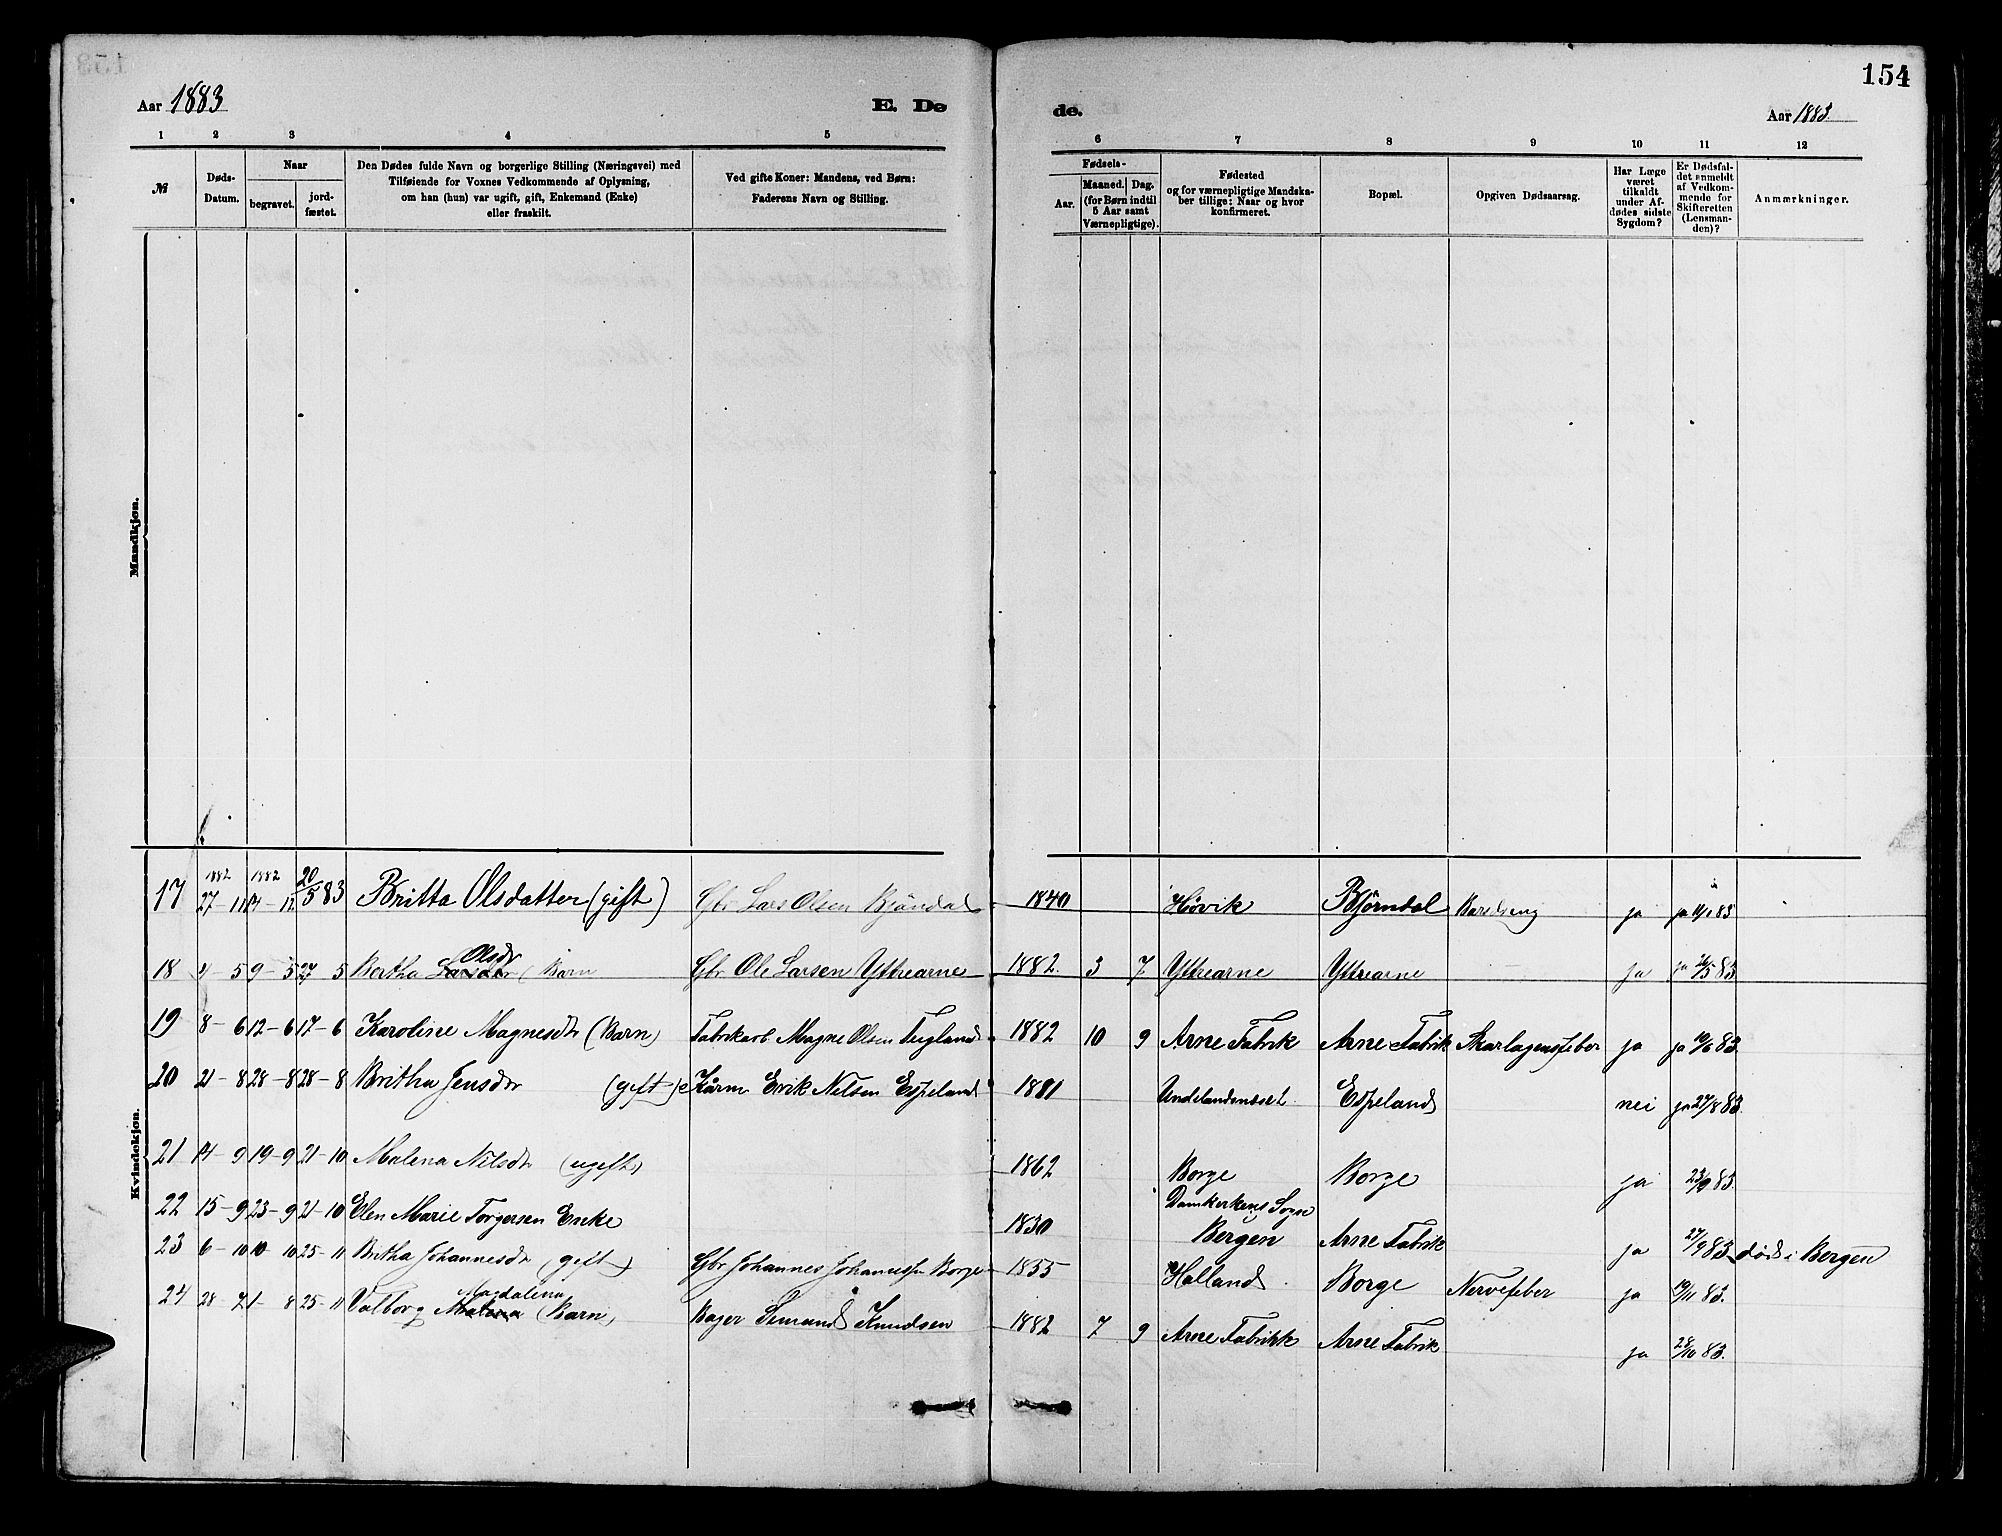 154
Aar 1883 E. De de. Aar 1883.
1 2 3 4 5 6 7 8 9 10 11 12
№
Døds-Datum.
Naar
begravet.
jord-
fæstet.
Den Dødes fulde Navn og borgerlige Stilling (Næringsvei) med
Tilføiende for Voxnes Vedkommende af Oplysning,
om han (hun) var ugift, gift, Enkemand (Enke)
eller fraskilt.
Ved gifte Koner: Mandens, ved Børn:
Faderens Navn og Stilling.
Fødsels-
Aar.
Maaned. Dag.
(for Børn indtil
5 Aar samt
Værnepligtige).
Fødested
og for værnepligtige Mandska-
ber tillige: Naar og hvor
konfirmeret.
Bopæl.
Opgiven Dødsaarsag.
Har Læge
været
tilkaldt
under Af-
dødes sidste
Sygdom?
Er Dødsfal-
det anmeldt
af Vedkom-
mende for
Skifteretten
(Lensman-
den)?
Anmærkninger.
Mandkjøn.
Kvindekjøn.
1882 1882 20/5 83
17 27 - 11 - 12 Britta Olsdatter (gift) Gbr Lars Olsen Bjöndal 1840 Hövik Björndal Barselseng ja ja 11/1 83
Olsdr
18 4 - 5 9 - 5 27 5 Bertha (Barn Gbr Ole Larsen Yttrearne 1882. 3 7 Yttrearne Yttrearne ja ja 26/5 83
19 8 - 6 12 - 6 17 - 6 Karoline Magnesdr (Barn) Fabrikarb Magne Olsen Tugland 1882 10 9 Arne Fabrik Arne Fabrik Skarlagensfeber ja ja 10/6 83.
20 21 - 8 28 - 8 28 - 8 Britha Jensdr (gift) Kårm Erik Nilsen Espeland 1801 Undelandsæset Espeland nei ja 27/8 83.
21 14 - 9 19 - 9 21 - 10 Malena Nilsdr (ugift) 1862 Borge Borge ja 23/9 83.
22 15 - 9 23 - 9 21 - 10 Elen Marie Torgersen Enke 1830 Domkerkens Sogn
Bergen Arne Fabrik ja 27/9 83 död i Bergen
23 6 - 10 10 - 10 25 - 11 Britha Johannesdr (gift) Gbr Johannes Johannessen Borge 1855 Holland Borge Nervefeber ja 19/11 83.
Magdalena
24 28 - 7 1 - 8 25 - 11 Valborg Malena (Barn) Bager Simund Knudsen 1882 7 9 Arne Fabrikk Arne Fabrik ja 28/10 83.